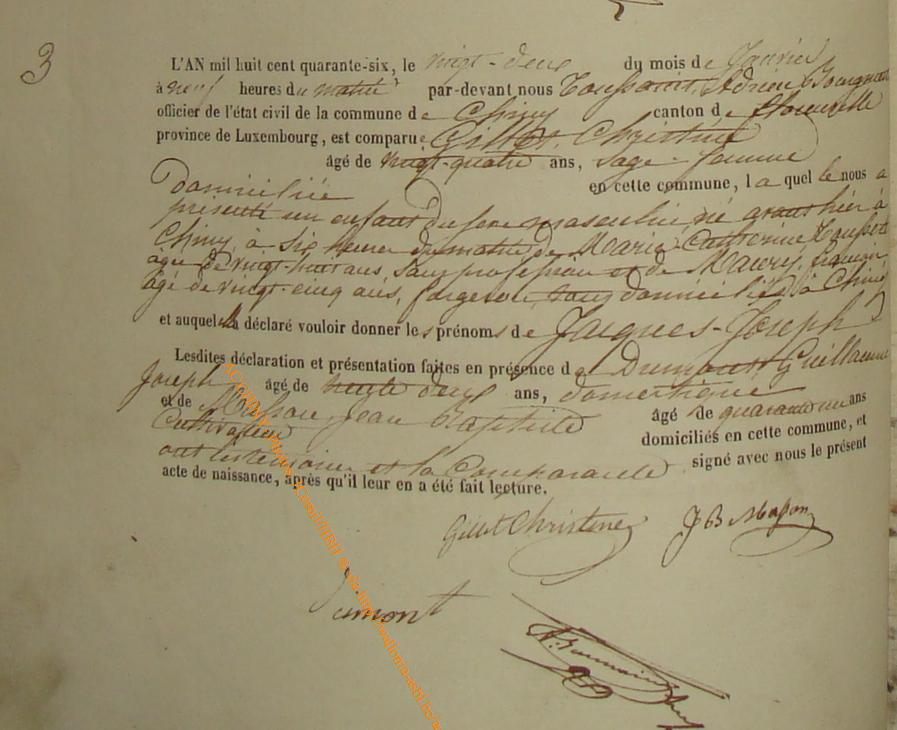 3
L'AN mil huit cent quarante-six, le vingt-deux du mois de Janvier
à neuf heures du matin par-devant nous Toussaint, Adrien
officier de l'état civil de la commune de Chiny canton de Florenville
province de Luxembourg, est comparue Gillet, Christine
âgé de vingt-quatre ans, sage-femme
Domiciliée en cette commune, la quel le nous a
présenté un enfant du sexe masculin, né avant hier à
Chiny, à six heures du matin de Marie Catherine
âgée de vingt-huit ans, sans profession et de
âgé de vingt-cinq ans, forgeron domiciliés à Chiny
et auquel a déclaré vouloir donner les prénoms de Jacques-Joseph
Lesdites déclaration et présentation faites en présence de Dumont Guillaume
Joseph âgé de trente deux ans, domestique
et de Masson, Jean Baptiste âgé de quarante un ans
Cultivateur domiciliés en cette commune, et
ont les témoins et la Comparante signé avec nous le présent
acte de naissance, après qu'il leur en a été fait lecture.
Gillet Christine J B Masson
Dumont